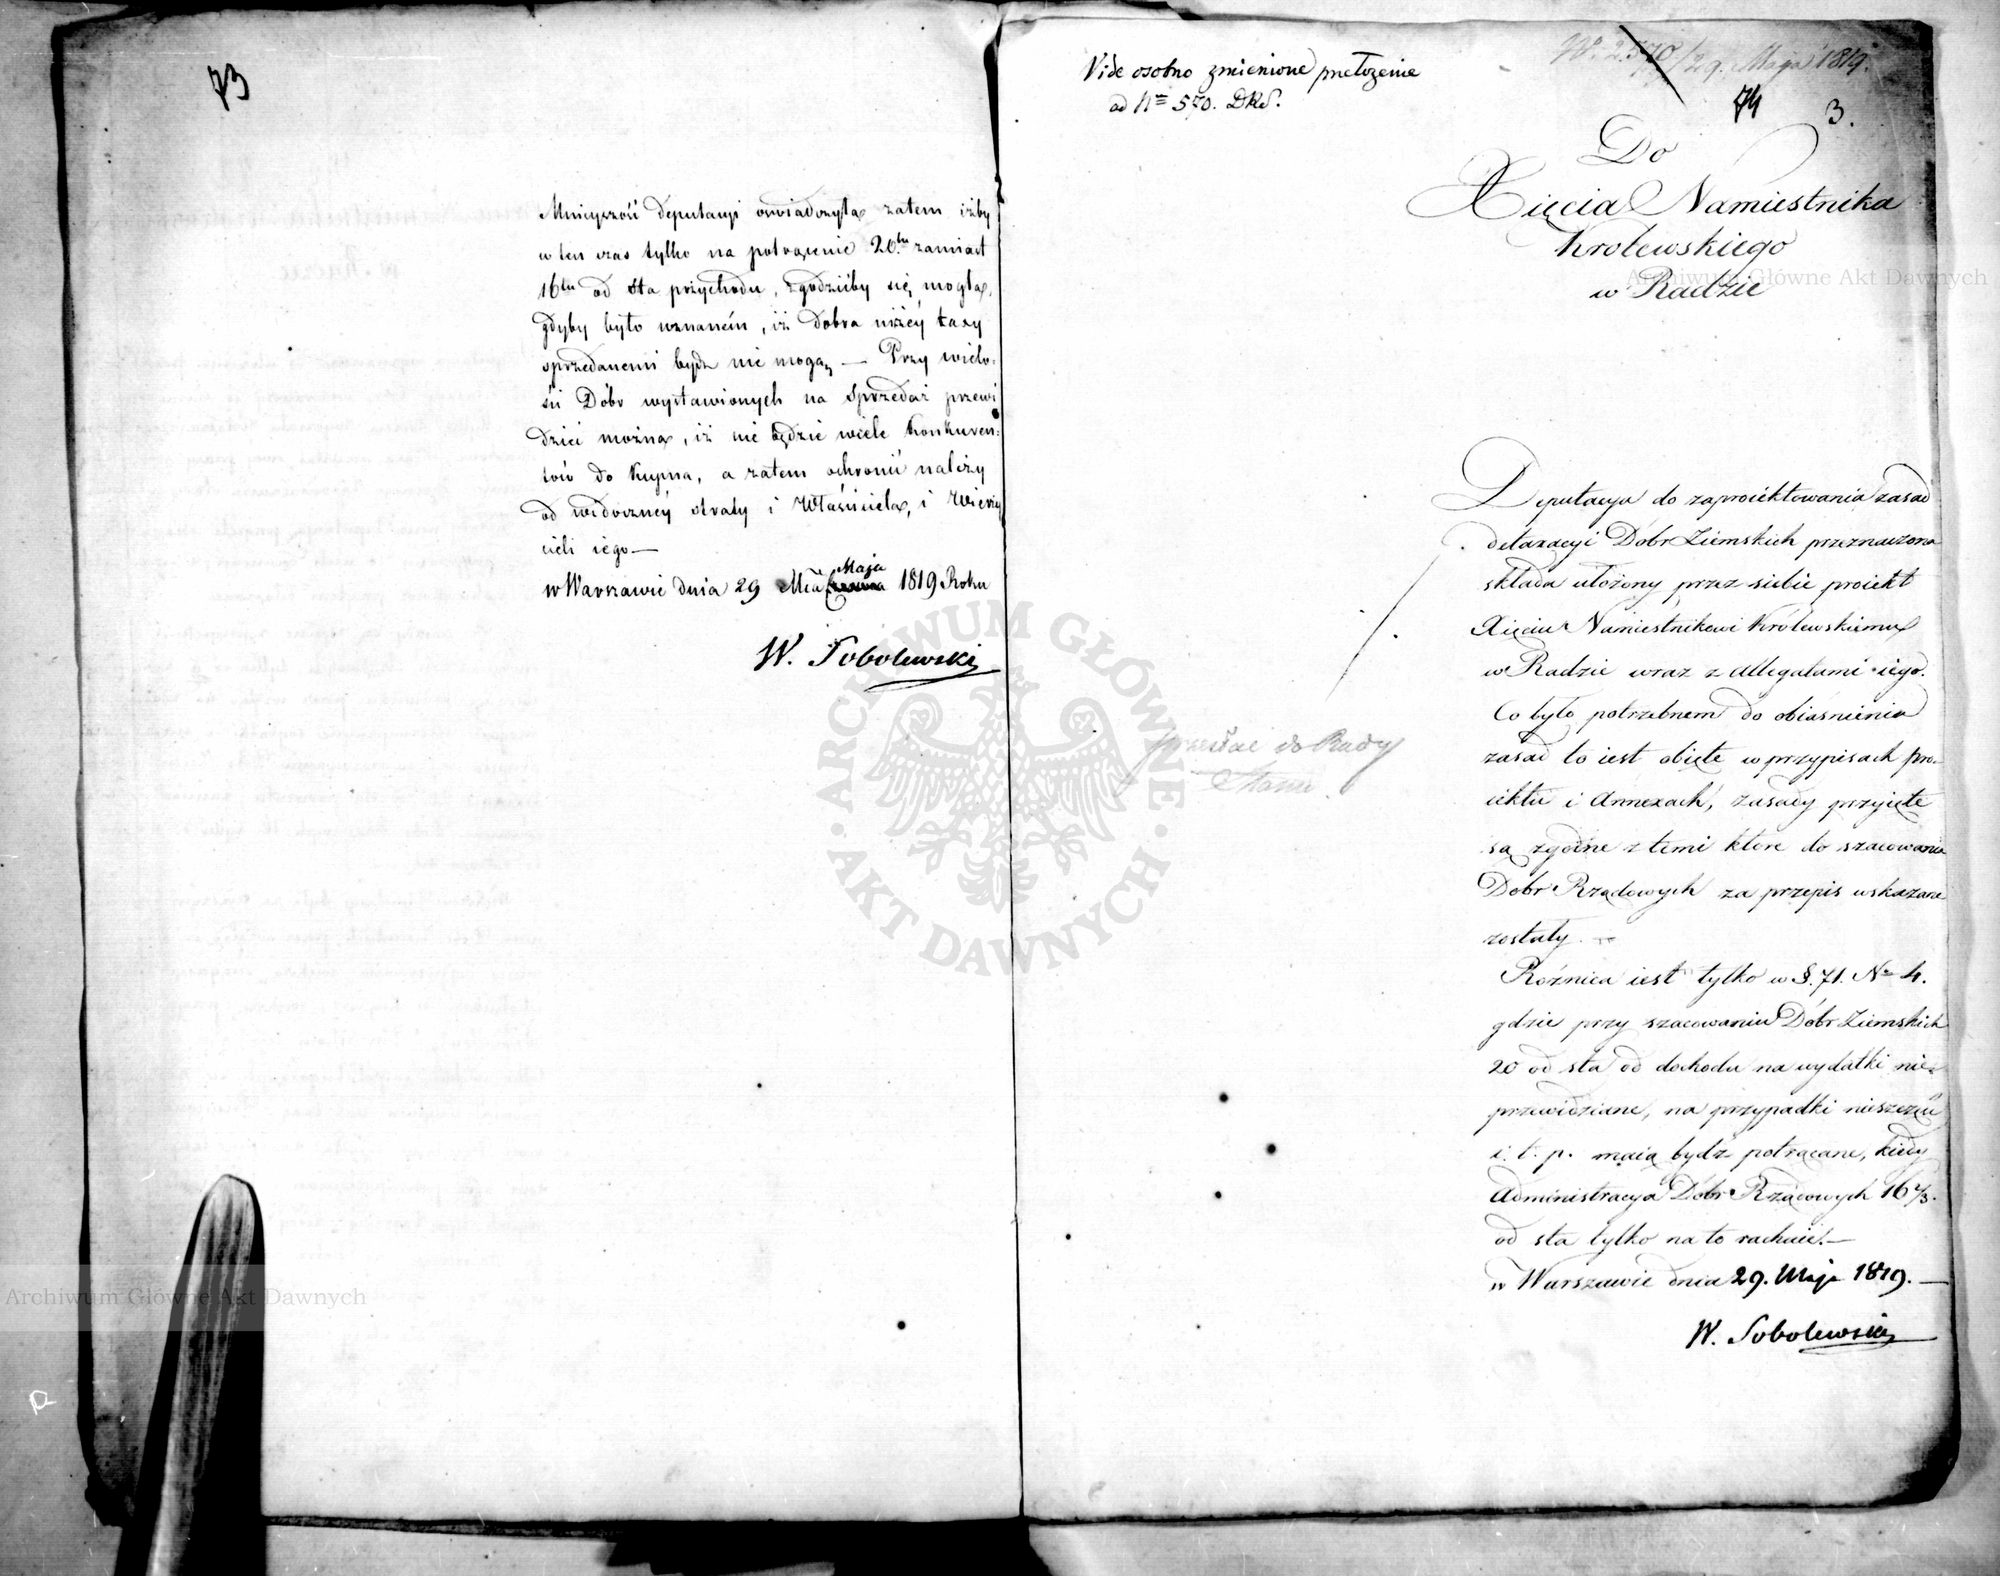 73
Mnieyszość deputacyi oswiadczyła zatem iżby
w ten czas tylko na potrącenie 20.tu zamiast
16tu od sta przychodu, zgodzićby się mogła,
gdyby było uznaném, iż dobra niżéy taxy
sprzedanemi bydź nie mogą — Przy wielo-
ści Dóbr wystawionych na Sprzedaż przewi
dzieć można, iż nie będzie wiele Konkuren-
tów do Kupna, a zatem ochronić należy
od widoczney straty i Właściciela, i Wierzy
cieli iego —
Maja
w Warszawie dnia 29 Mca 1819 Roku
W. Sobolewski
Vide osobno zmienione przełożenie
ad Nr 570. DKS.
No 2570/29. Maja 1819.
74 3.
Do
Xięcia Namiestnika
Krolewskiego
w Radzie
Deputacya do zaproiektowania zasad
detaxacyi Dobr Ziemskich przeznaczona
składa ułożony przez siebie proiekt
Xięciu Namiestnikowi Królewskiemu
w Radzie wraz z Allegatami iego.
Co było potrzebnem do obiaśnienia
zasad to iest obięte w przypisach pro-
iektu i Annexach, zasady przyięte
są zgodne z temi ktore do szacowania
Dobr Rządowych za przepis wskazane
zostały. —
Roźnica iest tylko w §. 71. No 4.
gdzie przy szacowaniu Dóbr Ziemskich
20 od sta od dochodu na wydatki nie-
przewidziane, na przypadki nieszczęść
i. t. p. maią bydź potrącane, kiedy
Administracya Dobr Rządowych 16 2/3.
od sta tylko na to rachuie. —
w Warszawie dnia 29. Maja 1819. —
W. Sobolewski
przesłać do Rady
Stanu.
ARCHIWUM GŁÓWNE · AKT DAWNYCH ·
Archiwum Główne Akt Dawnych
Archiwum Główne Akt Dawnych